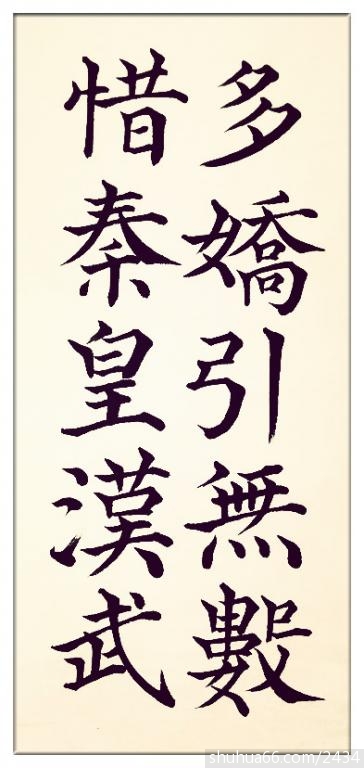 多嬌引無數
惜秦皇漢武
shuhua66.com/2434